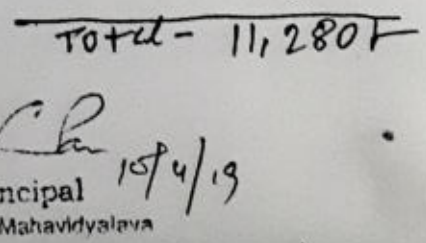 Total - 11,280/-
15/4/19
ncipal
Mahavidyalaya